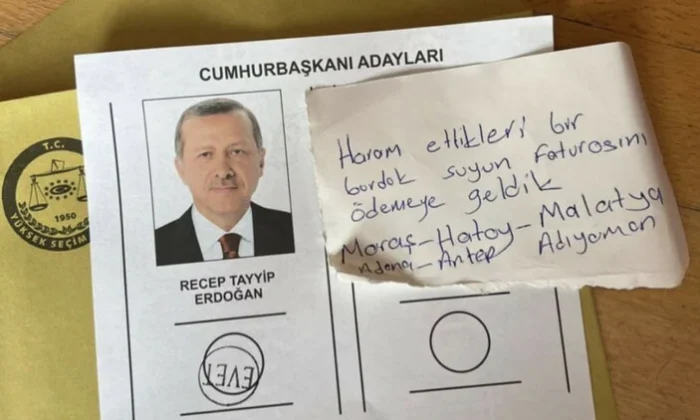 CUMHURBAŞKANI ADAYLARI
Haram ettikleri bir
bardak suyun faturasını
ödemeye geldik
Maraş-Hatay-Malatya
Adana-Antep Adıyaman
T.C.
1950
YÜKSEK SEÇİM
RECEP TAYYİP
ERDOĞAN
EVET